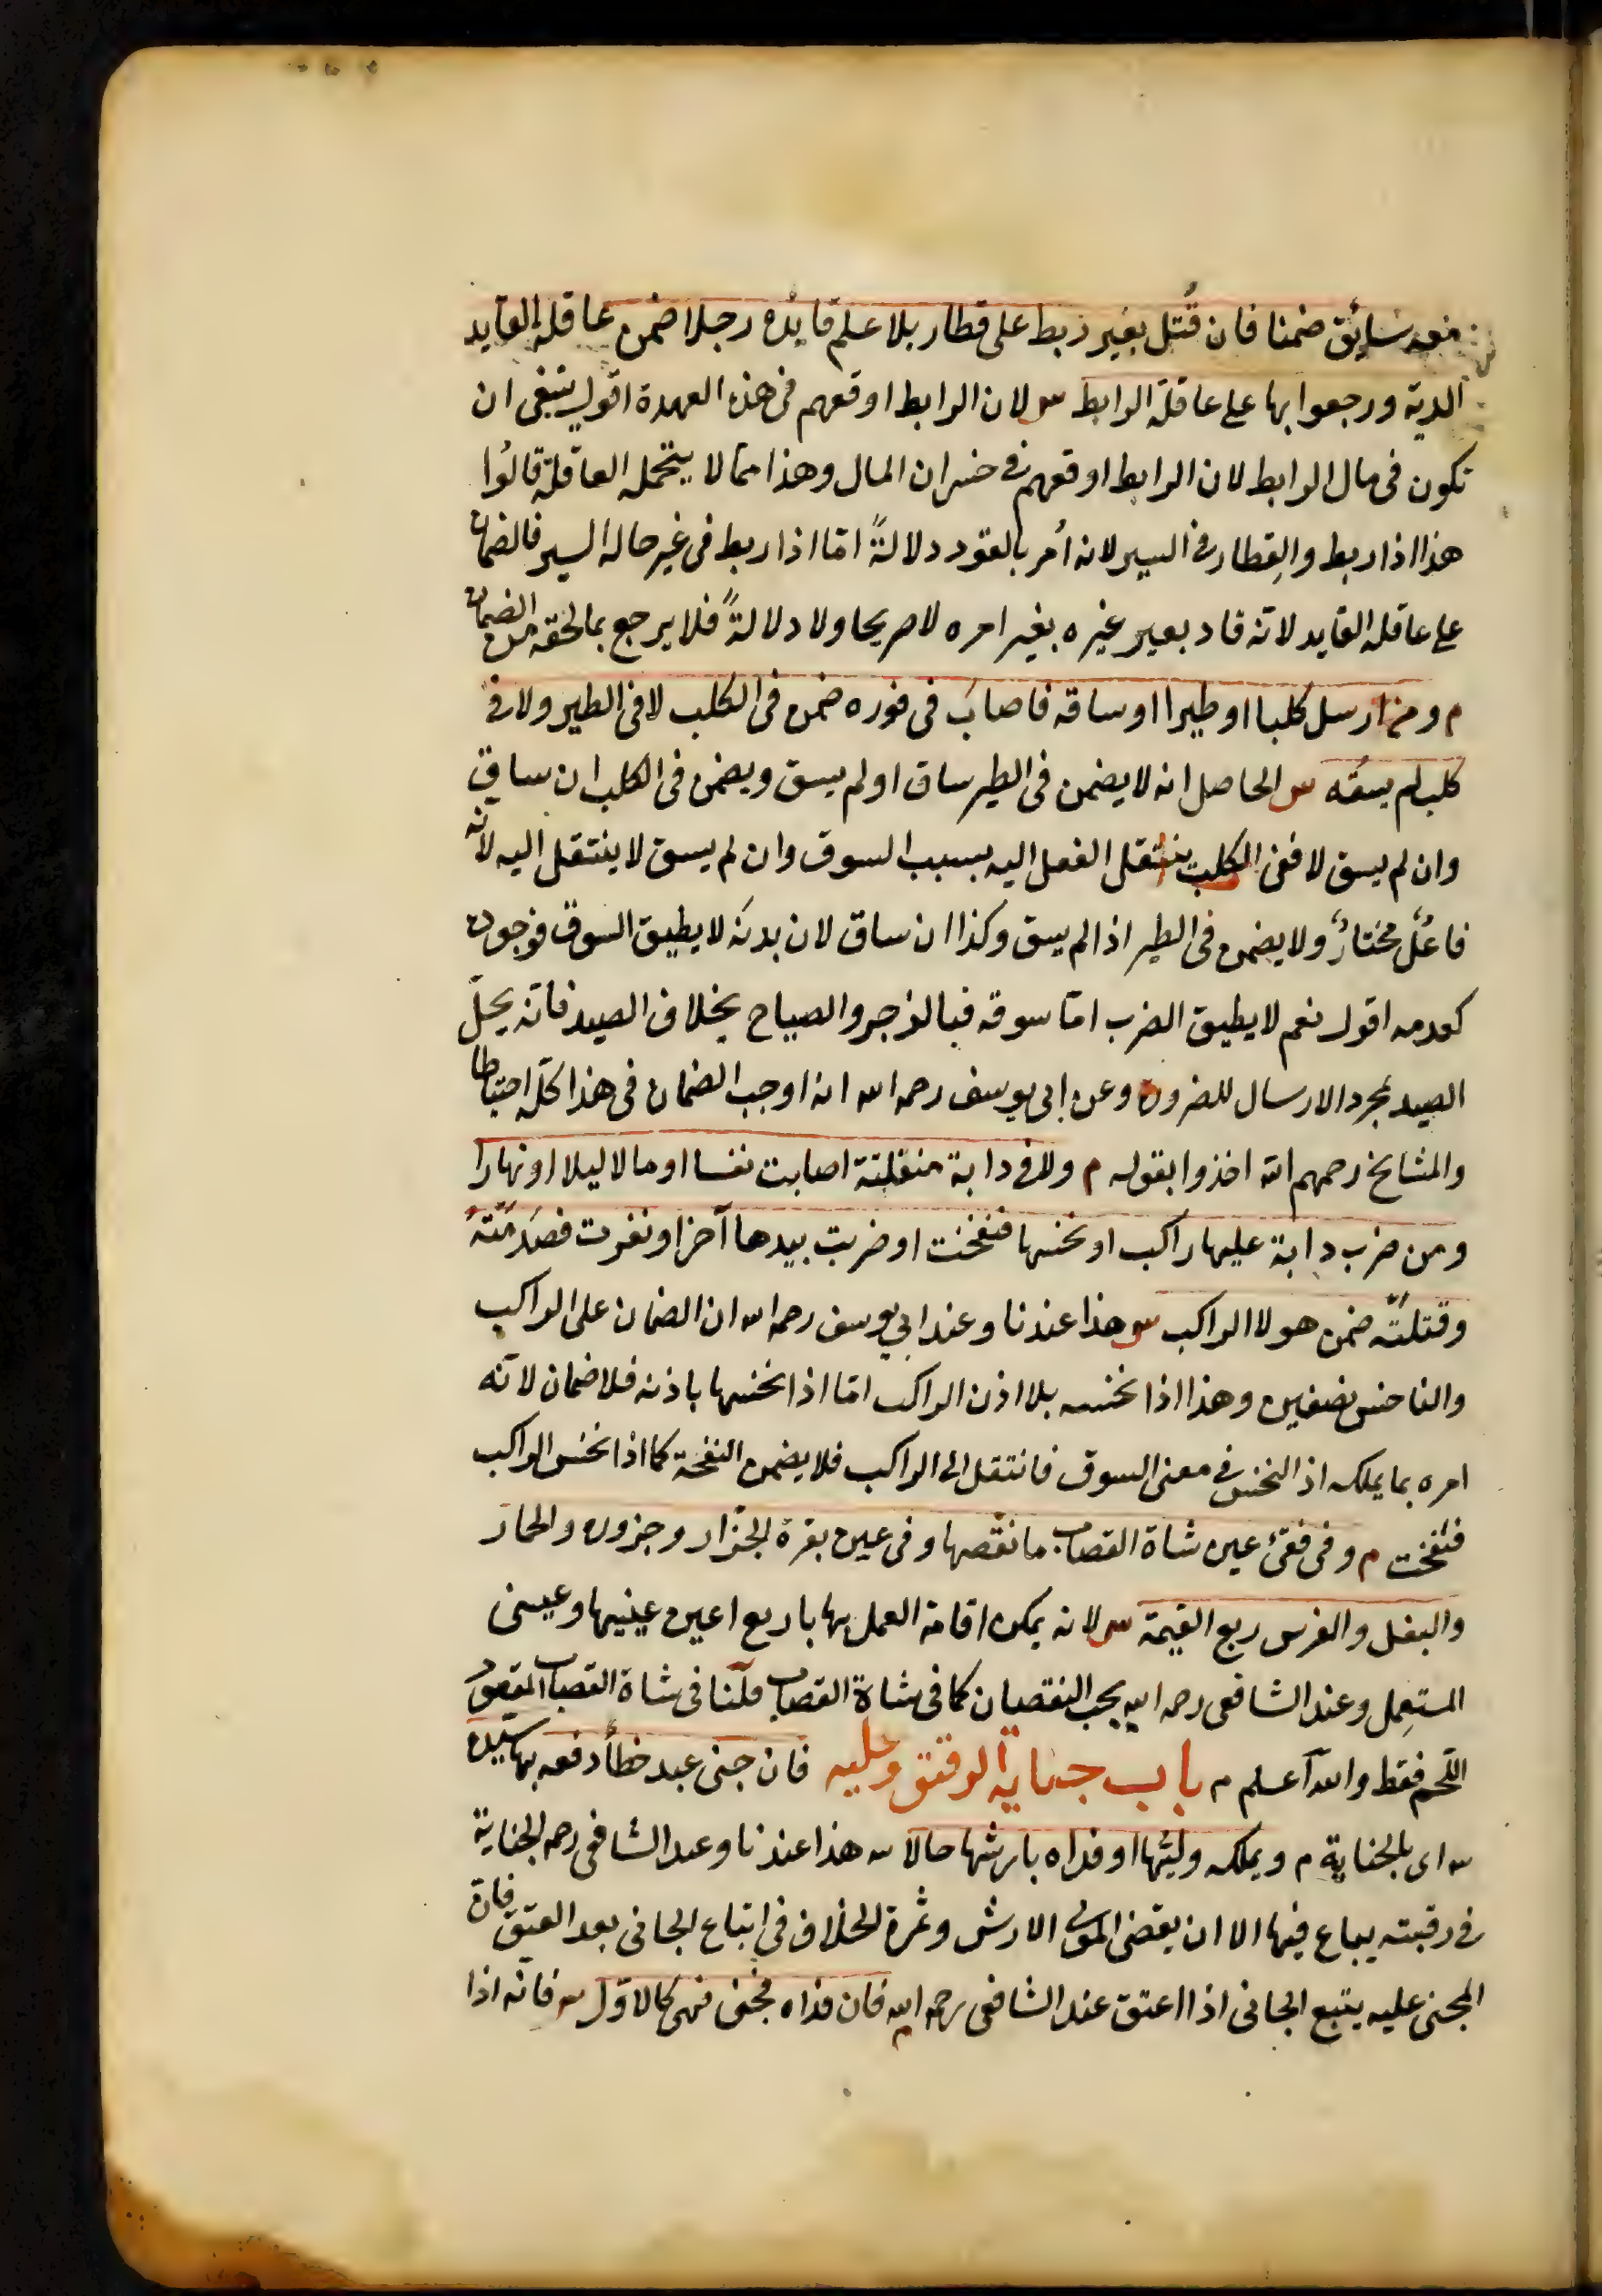 معه سائق ضمنا فان قُتل بعير ربط على قطار بلا علم قايده رجلا ضمن عاقلة القايد
الدية ورجعوا بها على عاقلة الرابط س لان الرابط اوقعهم فى هذه العهدة اقول ينبغى ان
تكون فى مال الرابط لان الرابط اوقعهم فى خسران المال وهذا ممّا لا يتحمله العاقلة قالوا
هذا اذا ربط والقِطار فى السير لانه أمر بالقود دلالةً امّا اذا ربط فى غير حالة السير فالضمان
على عاقلة القايد لانّه قاد بعير غيره بغير امره لا صريحا ولا دلالةً فلا يرجع بما لحقه من الضمان
م ومن ارسل كلبا او طيرا او ساقه فاصاب فى فوره ضمن فى الكلب لا فى الطير ولا فى
كلب لم يسقه س الحاصل انه لا يضمن فى الطير ساق او لم يسق ويضمن فى الكلب ان ساق
وان لم يسق لا ففى الكلب ينتقل الفعل اليه بسبب السوق وان لم يسق لا ينتقل اليه لانّه
فاعلٌ مختارٌ ولا يضمن فى الطير اذا لم يسق وكذا ان ساق لان بدنه لا يطيق السوق فوجوده
كعدمه اقول نعم لا يطيق الضرب امّا سوقه فبالزجر والصياح بخلاف الصيد فانّه يحلّ
الصيد بمجرد الارسال للضرورة وعن ابى يوسف رحمه الله انه اوجب الضمان فى هذا كلّه احتياطا
والمشايخ رحمهم الله اخذوا بقوله م ولا فى دابة منفلتة اصابت نفسا او مالا ليلا او نهارا
ومن ضرب دابة عليها راكب او نخسها فنفحت او ضربت بيدها آخر او نفرت فصدمَته
وقتلته ضمن هو لا الراكب س هذا عندنا وعند ابى يوسف رحمه الله ان الضمان على الراكب
والناخس نصفين وهذا اذا نخسه بلا اذن الراكب امّا اذا نخسها باذنه فلا ضمان لانّه
امره بما يملكه اذ النخس فى معنى السوق فانتقل الى الراكب فلا يضمن النفحة كما اذا نخس الراكب
فنفحت م وفى فقئ عين شاة القصاب ما نقصها وفى عين بقرة الجزّار وجزوره والحمار
والبغل والفرس ربع القيمة س لانه يمكن اقامة العمل بها باربع اعين عينيها وعينى
المستعمِل وعند الشافعى رحمه الله يجب النقصان كما فى شاة القصاب قلنا فى شاة القصاب المقصود
اللّحم فقط والله اعلم م باب جناية الرقيق وعليه فان جنى عبد خطأ دفعه بها سيّده
س اى بالجناية م ويملكه وليّها او فداه بارشها حالا س هذا عندنا وعند الشافعى رحمه الجناية
فى رقبته يباع فيها الا ان يقضى المولى الارش وثمرة الخلاف فى اتباع الجانى بعد العتق فان
المجنى عليه يتبع الجانى اذا اعتق عند الشافعى رحمه الله م فان فداه فجنى فهى كالاوّل س فانّه اذا